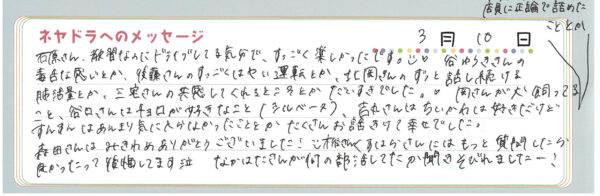 店員に正論で詰めた
こととか
ネヤドラへのメッセージ
3月10日
石原さん、教習なのにドライブしてる気分で、すっごく楽しかったです。谷ゆうきさんの
毒舌な感じとか、後藤さんのすっごくはやい運転とか、北岡さんのずっと話し続ける
肺活量とか、三宅さんの共感してくれるところとかだいすきでした。岡さんが犬飼ってる
こと、谷口さんはチョロが好きなこと(シルベーヌ)、吉丸さんはちいかわは好きだけど
すんすんはあんまり気に入らなかったこととかたくさんお話きけて幸せでした。
森田さんはみきわめありがとうございました!松さんくすはらさんにはもっと質問したら
良かったって後悔してます泣 なかはたさんが何の部活してたか聞きそびれましたー!